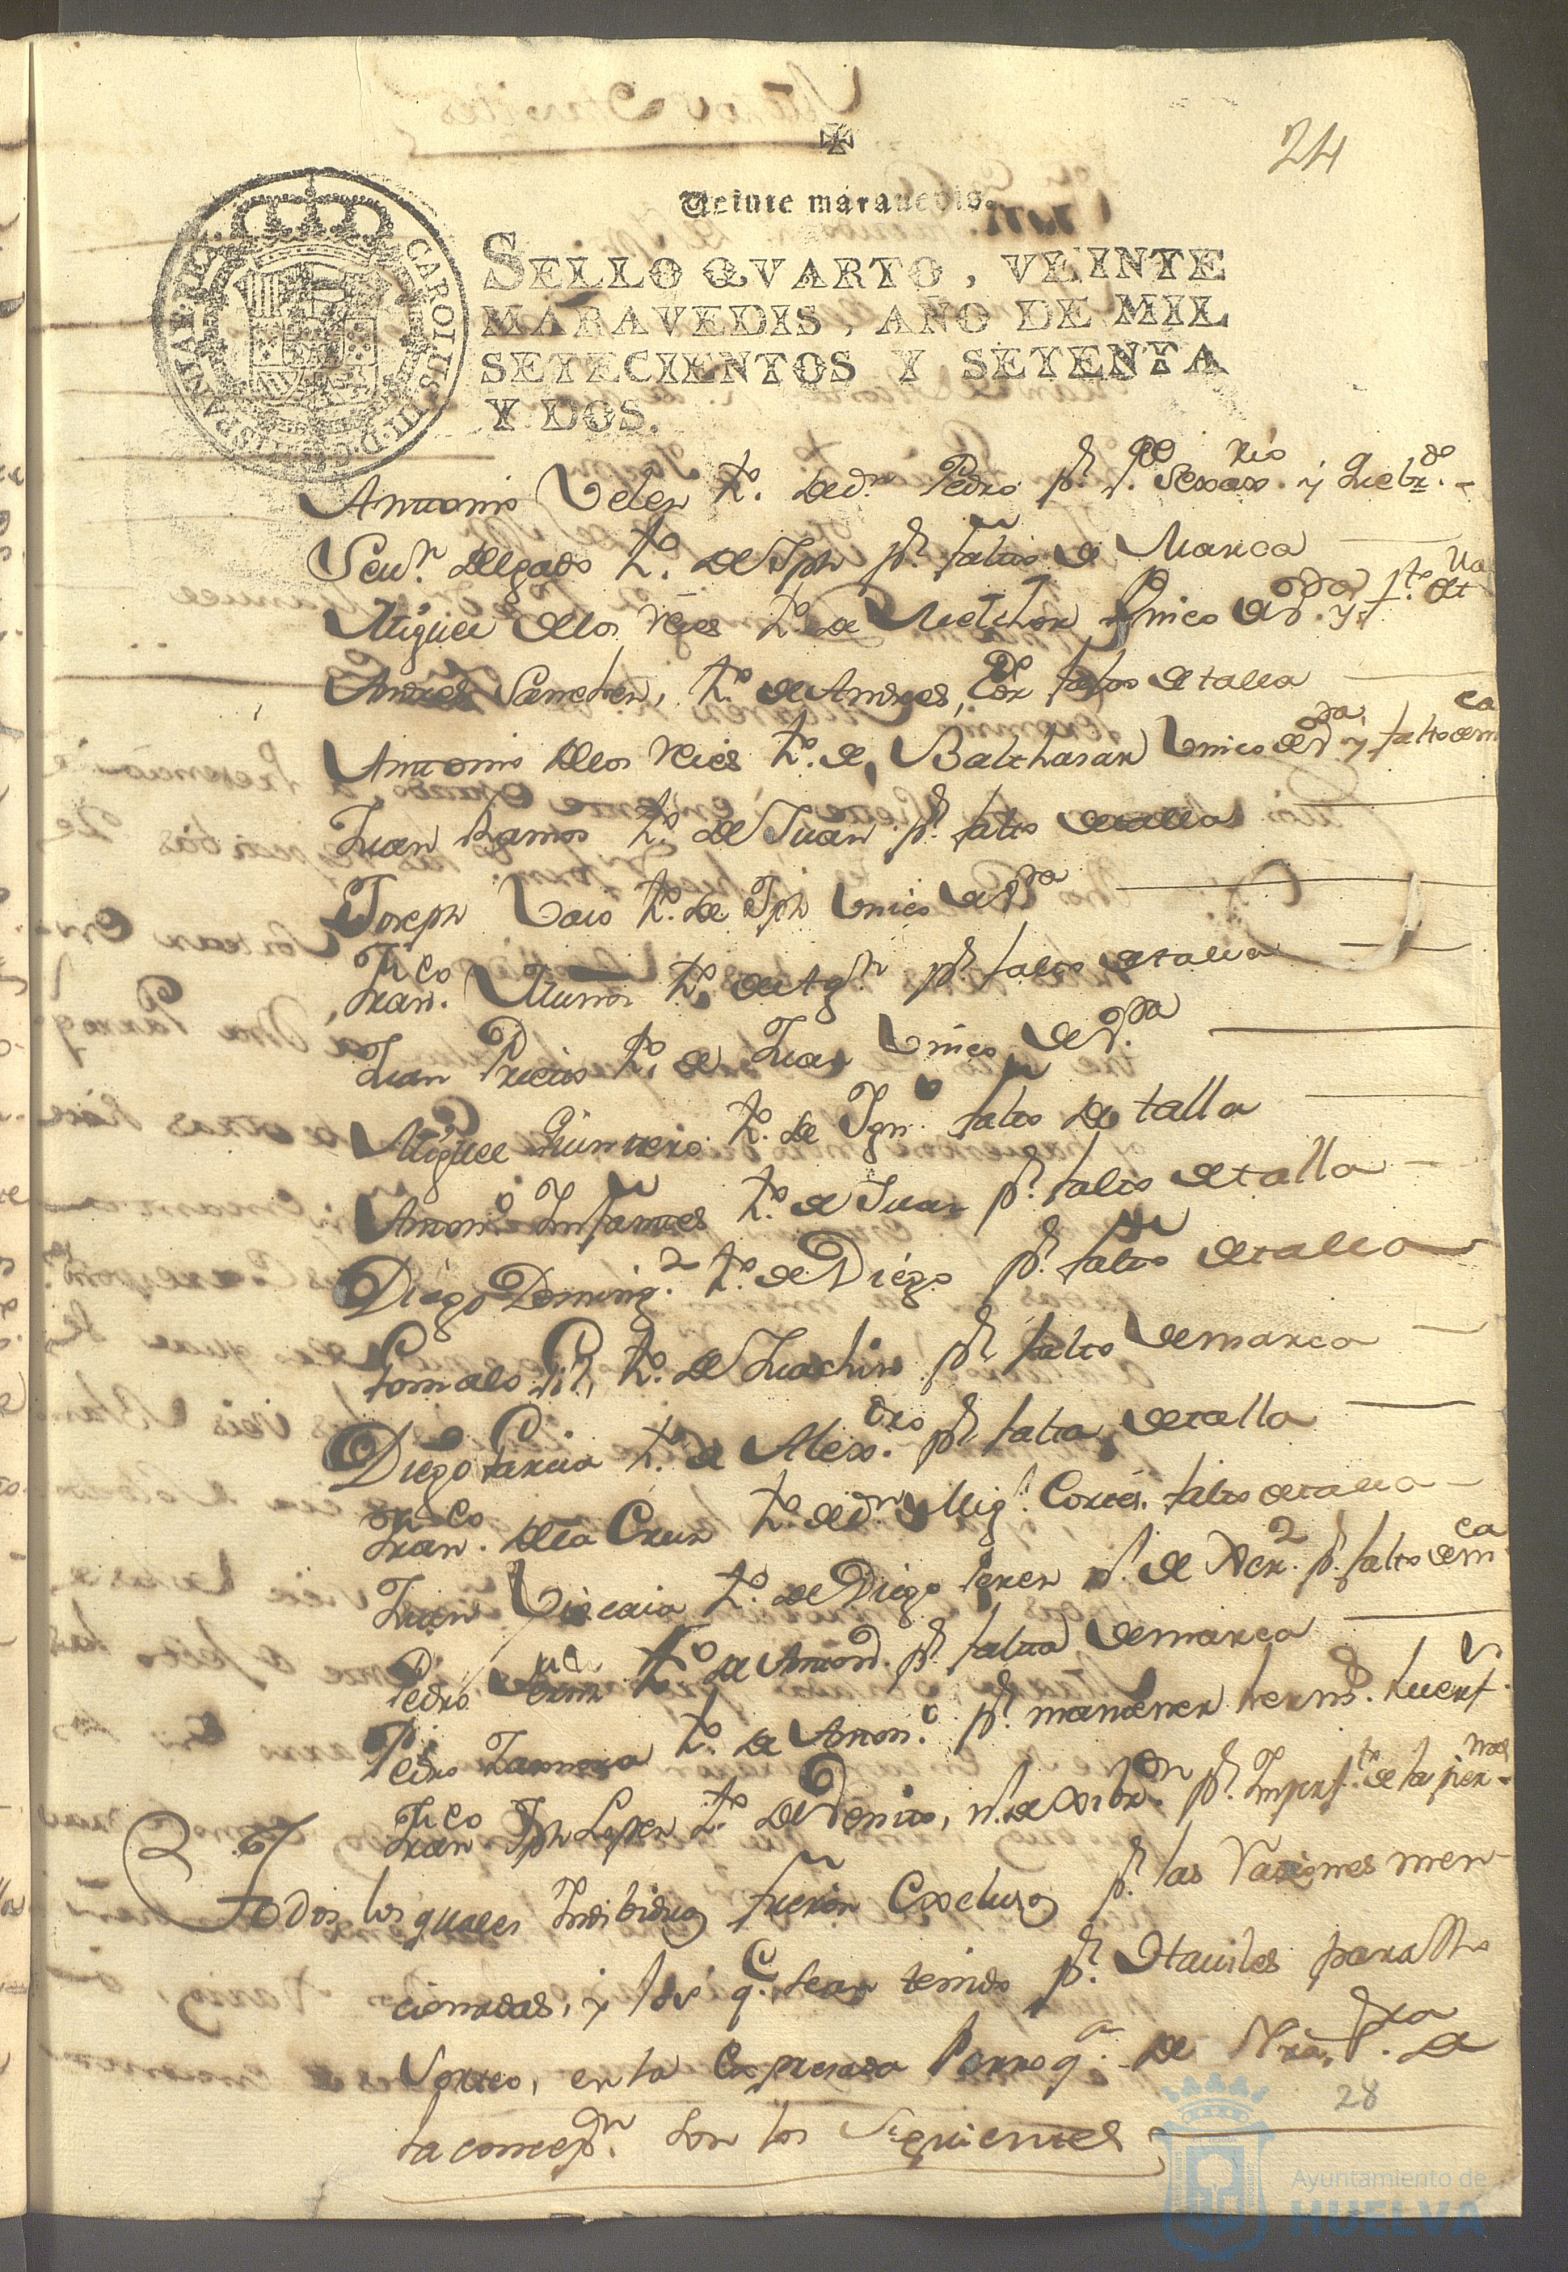 24
Veinte maravedis.
SELLO QVARTO, VEINTE
MARAVEDIS, AÑO DE MIL
SETECIENTOS Y SETENTA
Y DOS.
CAROLUS III D G HISPANIAR REX
Antonio Velez h.º de d.n Pedro p.r
Seu.n delgado h.º de Jph p.r falto de Marca
Miguel delos Reies h.º de Melchor Vnico de V.da y f.to de
Andres Sanchez, h.º de Andres, falto de talla
Antonio delos Reies h.º de Balthasar Vnico de V.da y falto de m.ca
Juan Ramos h.º de Juan p.r falto de talla
Joseph h.º de Jph Vnico de V.da
Fran.co Muños h.º de Ag.n p.r falto de talla
Juan Prieto h.º de Juan Vnico de V.da
Miguel Quintero h.º de Ign.o falto de talla
Anton.o Infantes h.º de Juan p.r falto de talla
Diego Doming.z h.º de Diego p.r falto de talla
Gonzalo h.º de Juachin p.r falto de marca
Diego Garcia h.º de Alex.dro p.r falta de talla
Fran.co dela Cruz h.º de d.n Mig.l Cortes, falto de talla
Juan Viscaia h.º de Diego Perez p.r falto de m.ca
Pedro h.º de p.r falta de marca
Pedro Zamora h.º de Anton.o p.r mantener herm.s huerf.
Fran.co Jph Lopez h.º de Benito, p.r de la pier.nas
Todos los quales Indibiduos fueron Excluso p.r las Razones men-
cionadas, y los q.e sean tenido p.r Haviles para dho
Sorteo, en la Expresada Parroq.a de Nra. S.ra de
la concep.n son los Siguientes
28
Ayuntamiento de
HUELVA